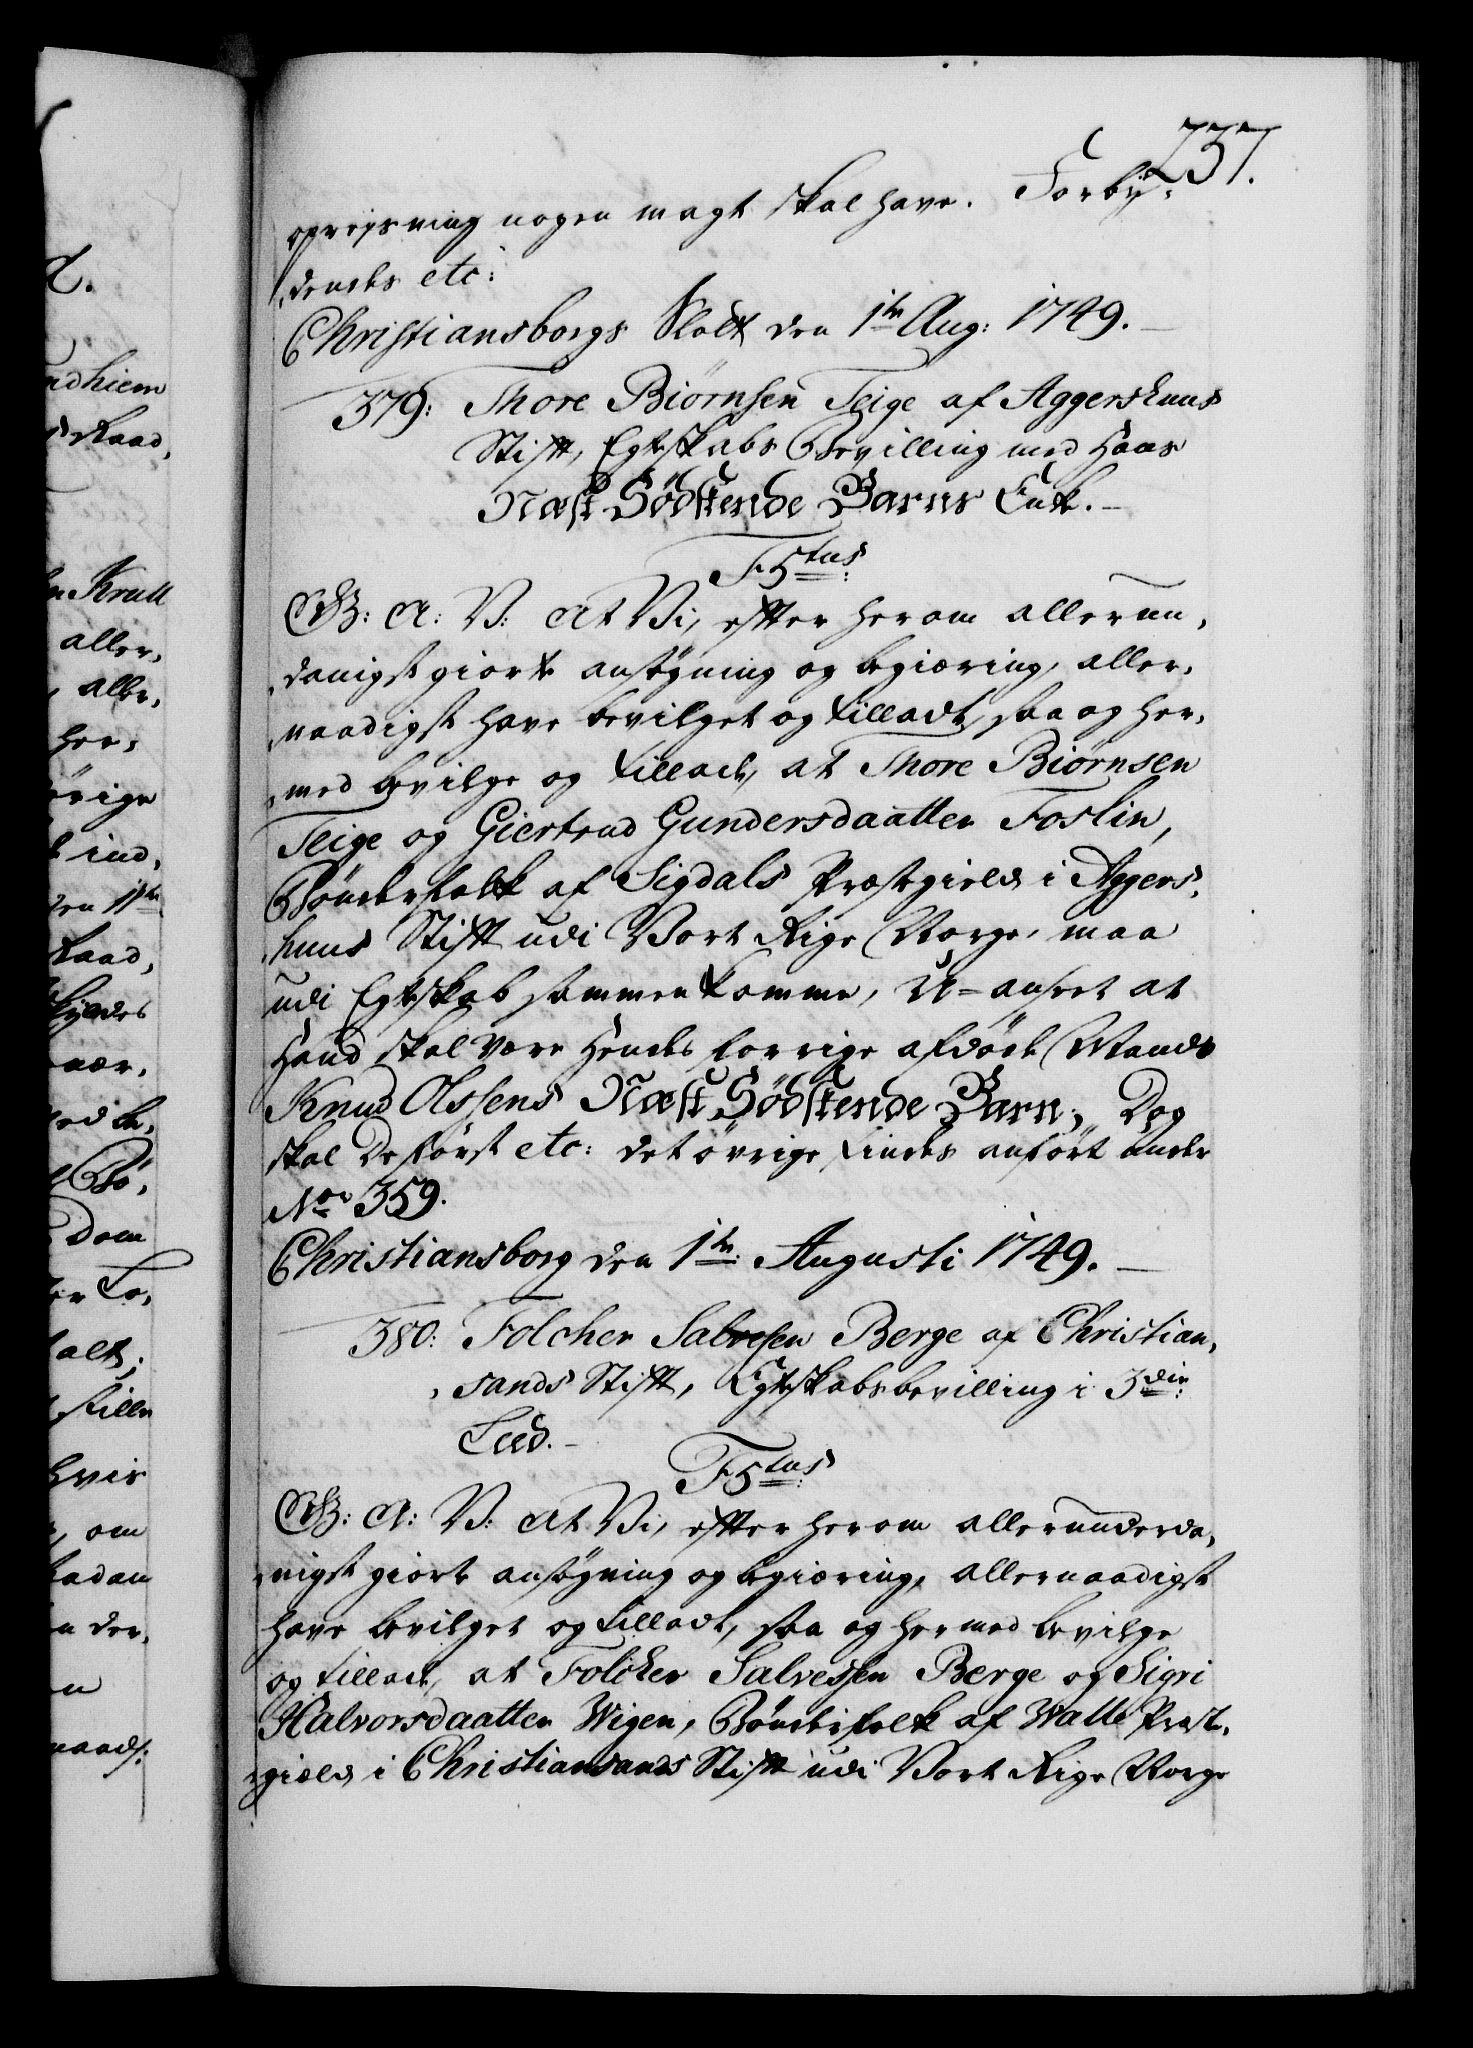 737.
opreisning nogen magt skal have. Forby-
dendes etc:
Christiansborgs Slott den 1te Aug: 1749.
379: Thore Biørnsen Teige af Aggershuus
Stift, Egteskabs Bevilling med Hans
Næst Sødskende Barns Enke.
F5tus
G: A: V: At Vi, efter herom allerun-
danigst giorte ansøgning og begiæring, aller-
naadigst have bevilget og tilladt, saa og her-
med bevilge og tillade, at Thore Biørnsen
Teige og Giertrud Gundersdaatter Foslin,
Bønderfolk af Sigdals Præstegield i Aggers-
huus Stift udi Vort Rige Norge, maa
udi Egteskab sammenkomme, U-anseet at
Hand skal være Hendes forrige afdøde Mands
Knud Olssens Næst Sødskende Barn; Dog
skal De først etc: det øvrige findes anført under
No 359.
Christiansborg den 1te Augusti 1749.
380: Folcher Salvesen Berge af Christian-
sands Stift, Egteskabsbevilling i 3die
Leed.
F5tus
G: A: V: At Vi, efter herom allerunderda-
nigst giorte ansøgning og begiæring, allernaadigst
have bevilget og tilladt, saa og hermed bevilge
og tillade, at Folcher Salvessen Berge og Sigri
Halvorsdaatter Wigen, Bønderfolk af Walle Præste-
gield i Christiansands Stift udi Vort Rige Norge